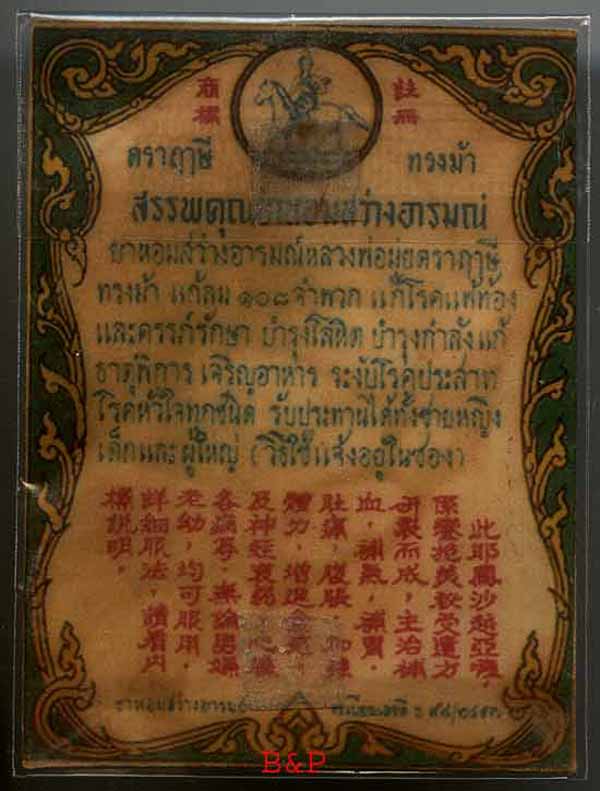 商標
註冊
ตราฤๅษี ทรงม้า
สรรพคุณยาหอมสว่างอารมณ์
ยาหอมสว่างอารมณ์หลวงพ่อมุ่ยตราฤๅษี
ทรงม้า แก้ลม ๑๐๘ จำพวก แก้โรคแพ้ท้อง
และครรภ์รักษา บำรุงโลหิต บำรุงกำลัง แก้
ธาตุพิการ เจริญอาหาร ระงับโรคประสาท
โรคหัวใจทุกชนิด รับประทานได้ทั้งชายหญิง
เด็กและผู้ใหญ่ (วิธีใช้แจ้งอยู่ในซอง)
此耶鳳沙越亞
係鑾抱美秘受運方
研製而成，主治補
血，補氣，補胃，
肚痛，腹脹
體力，增進
及神經衰弱
各病等，無論男婦
老幼，均可服用，
詳細服法，請看內
標說明，
ยาหอมสว่างอารมณ์ ทะเบียนเลขที่
B&P